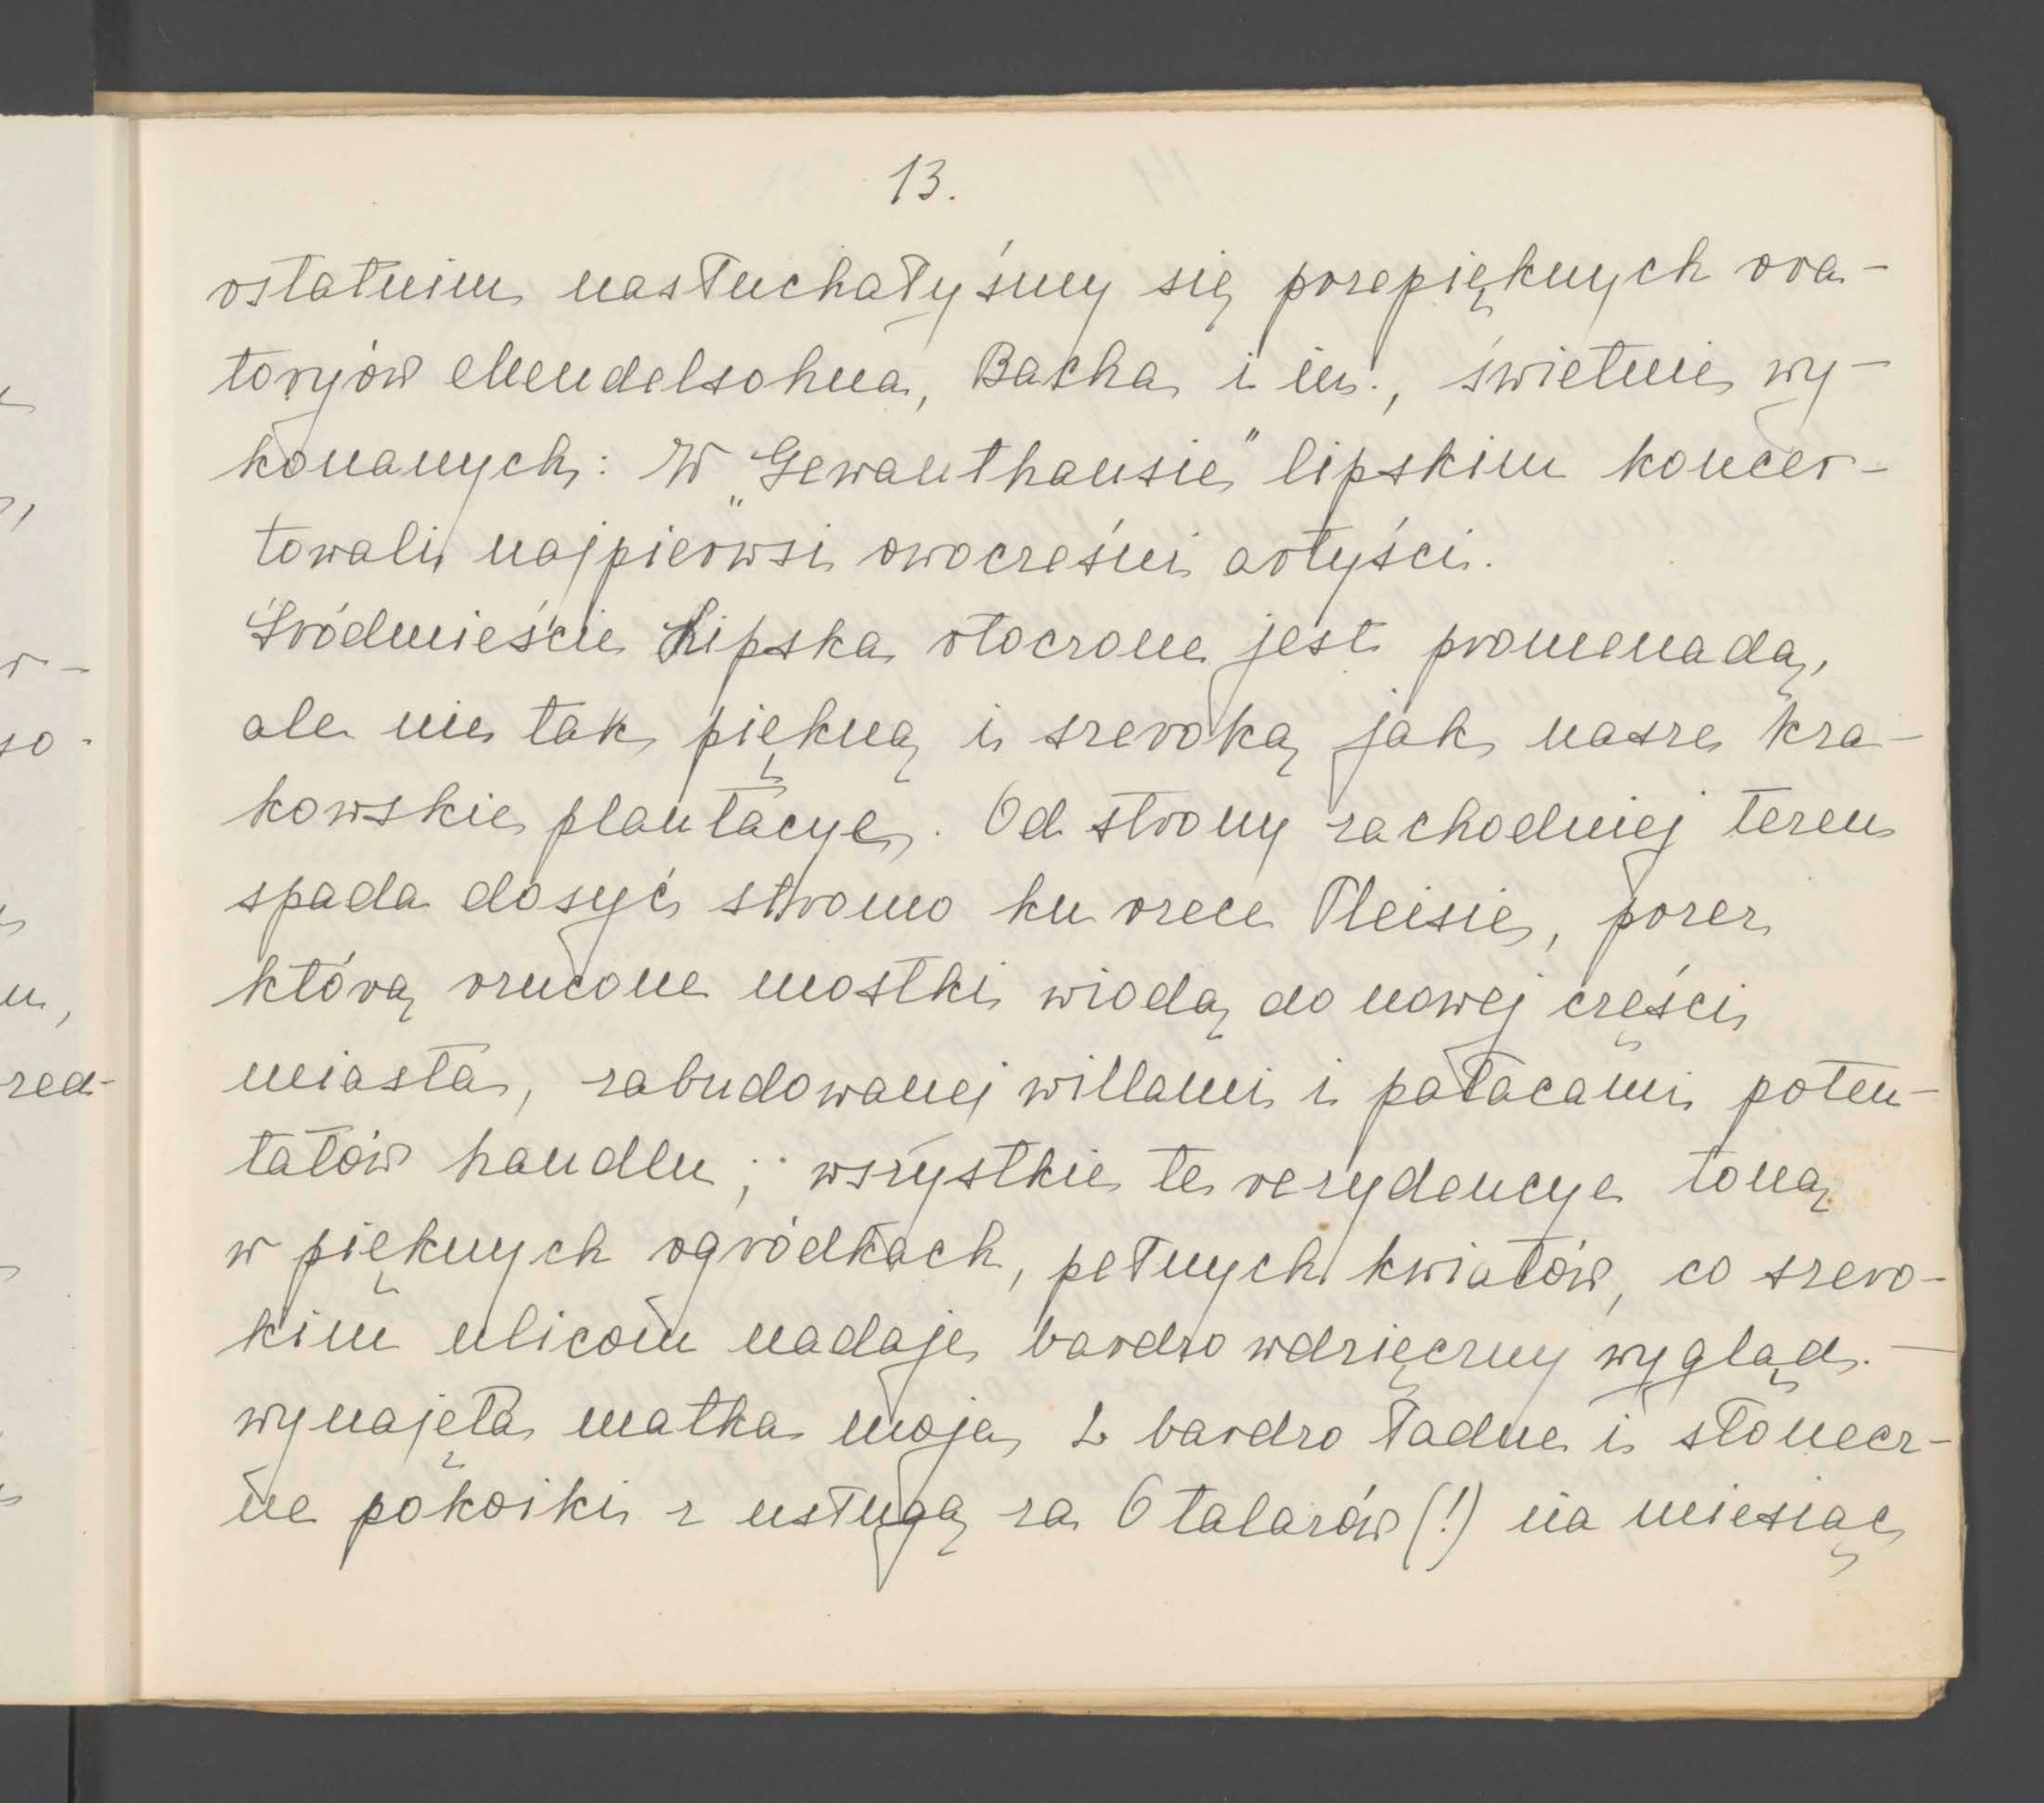 13.
ostatnim nasłuchałyśmy się przepięknych ora-
toryów Mendelsohna, Bacha i in., świetnie wy-
konanych: W „Gewanthausie" lipskim koncer-
towali najpierwsi owocześni artyści.
Śródmieście Lipska otoczone jest promenadą,
ale nie tak piękną i szeroką jak nasze kra-
kowskie plantacye. Od strony zachodniej teren
spada dosyć stromo ku rzece Pleisie, przez
którą rzucone mostki wiodą do nowej części
miasta, zabudowanej willami i pałacami poten-
tatów handlu; wszystkie te rezydencye toną
w pięknych ogródkach, pełnych kwiatów, co szero-
kim ulicom nadaje bardzo wdzięczny wygląd. —
wynajęła matka moja 2 bardzo ładne i słonecz-
ne pokoiki z usługą za 6 talarów (!) na miesiąc